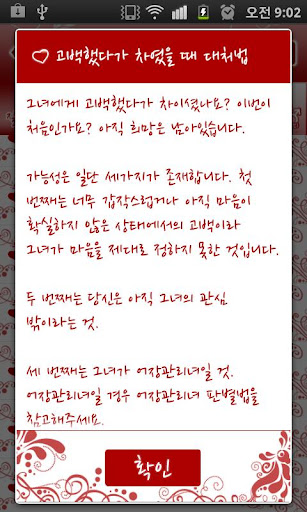 오전 9:02
고백했다가 차였을 때 대처법
그녀에게 고백했다가 차이셨나요? 이번이
처음인가요? 아직 희망은 남아있습니다.
가능성은 일단 세가지가 존재합니다. 첫
번째는 너무 갑작스럽거나 아직 마음이
확실하지 않은 상태에서의 고백이라
그녀가 마음을 제대로 정하지 못한 것입니다.
두 번째는 당신은 아직 그녀의 관심
밖이라는 것.
세 번째는 그녀가 어장관리녀일 것.
어장관리녀일 경우 어장관리녀 판별법을
참고해주세요.
확인